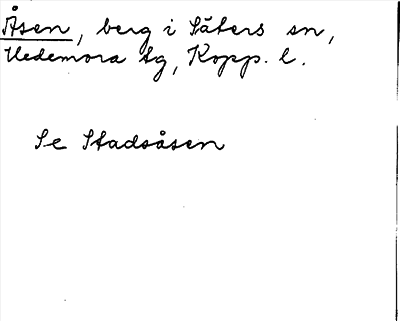 Åsen, berg i Säters sn,
Hedemora tg, Kopp. l.
Se Stadsåsen